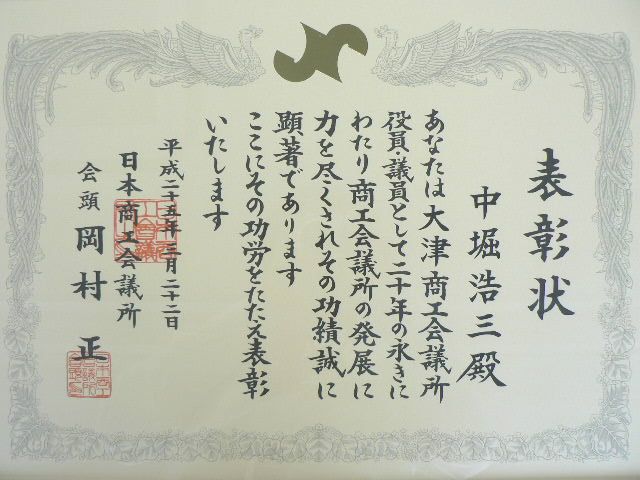 表彰状
中堀浩三殿
あなたは大津商工会議所
役員・議員として二十年の永きに
わたり商工会議所の発展に
力を尽くされその功績誠に
顕著であります
ここにその功労をたたえ表彰
いたします
平成二十五年三月二十二日
日本商工会議所
会頭 岡村 正